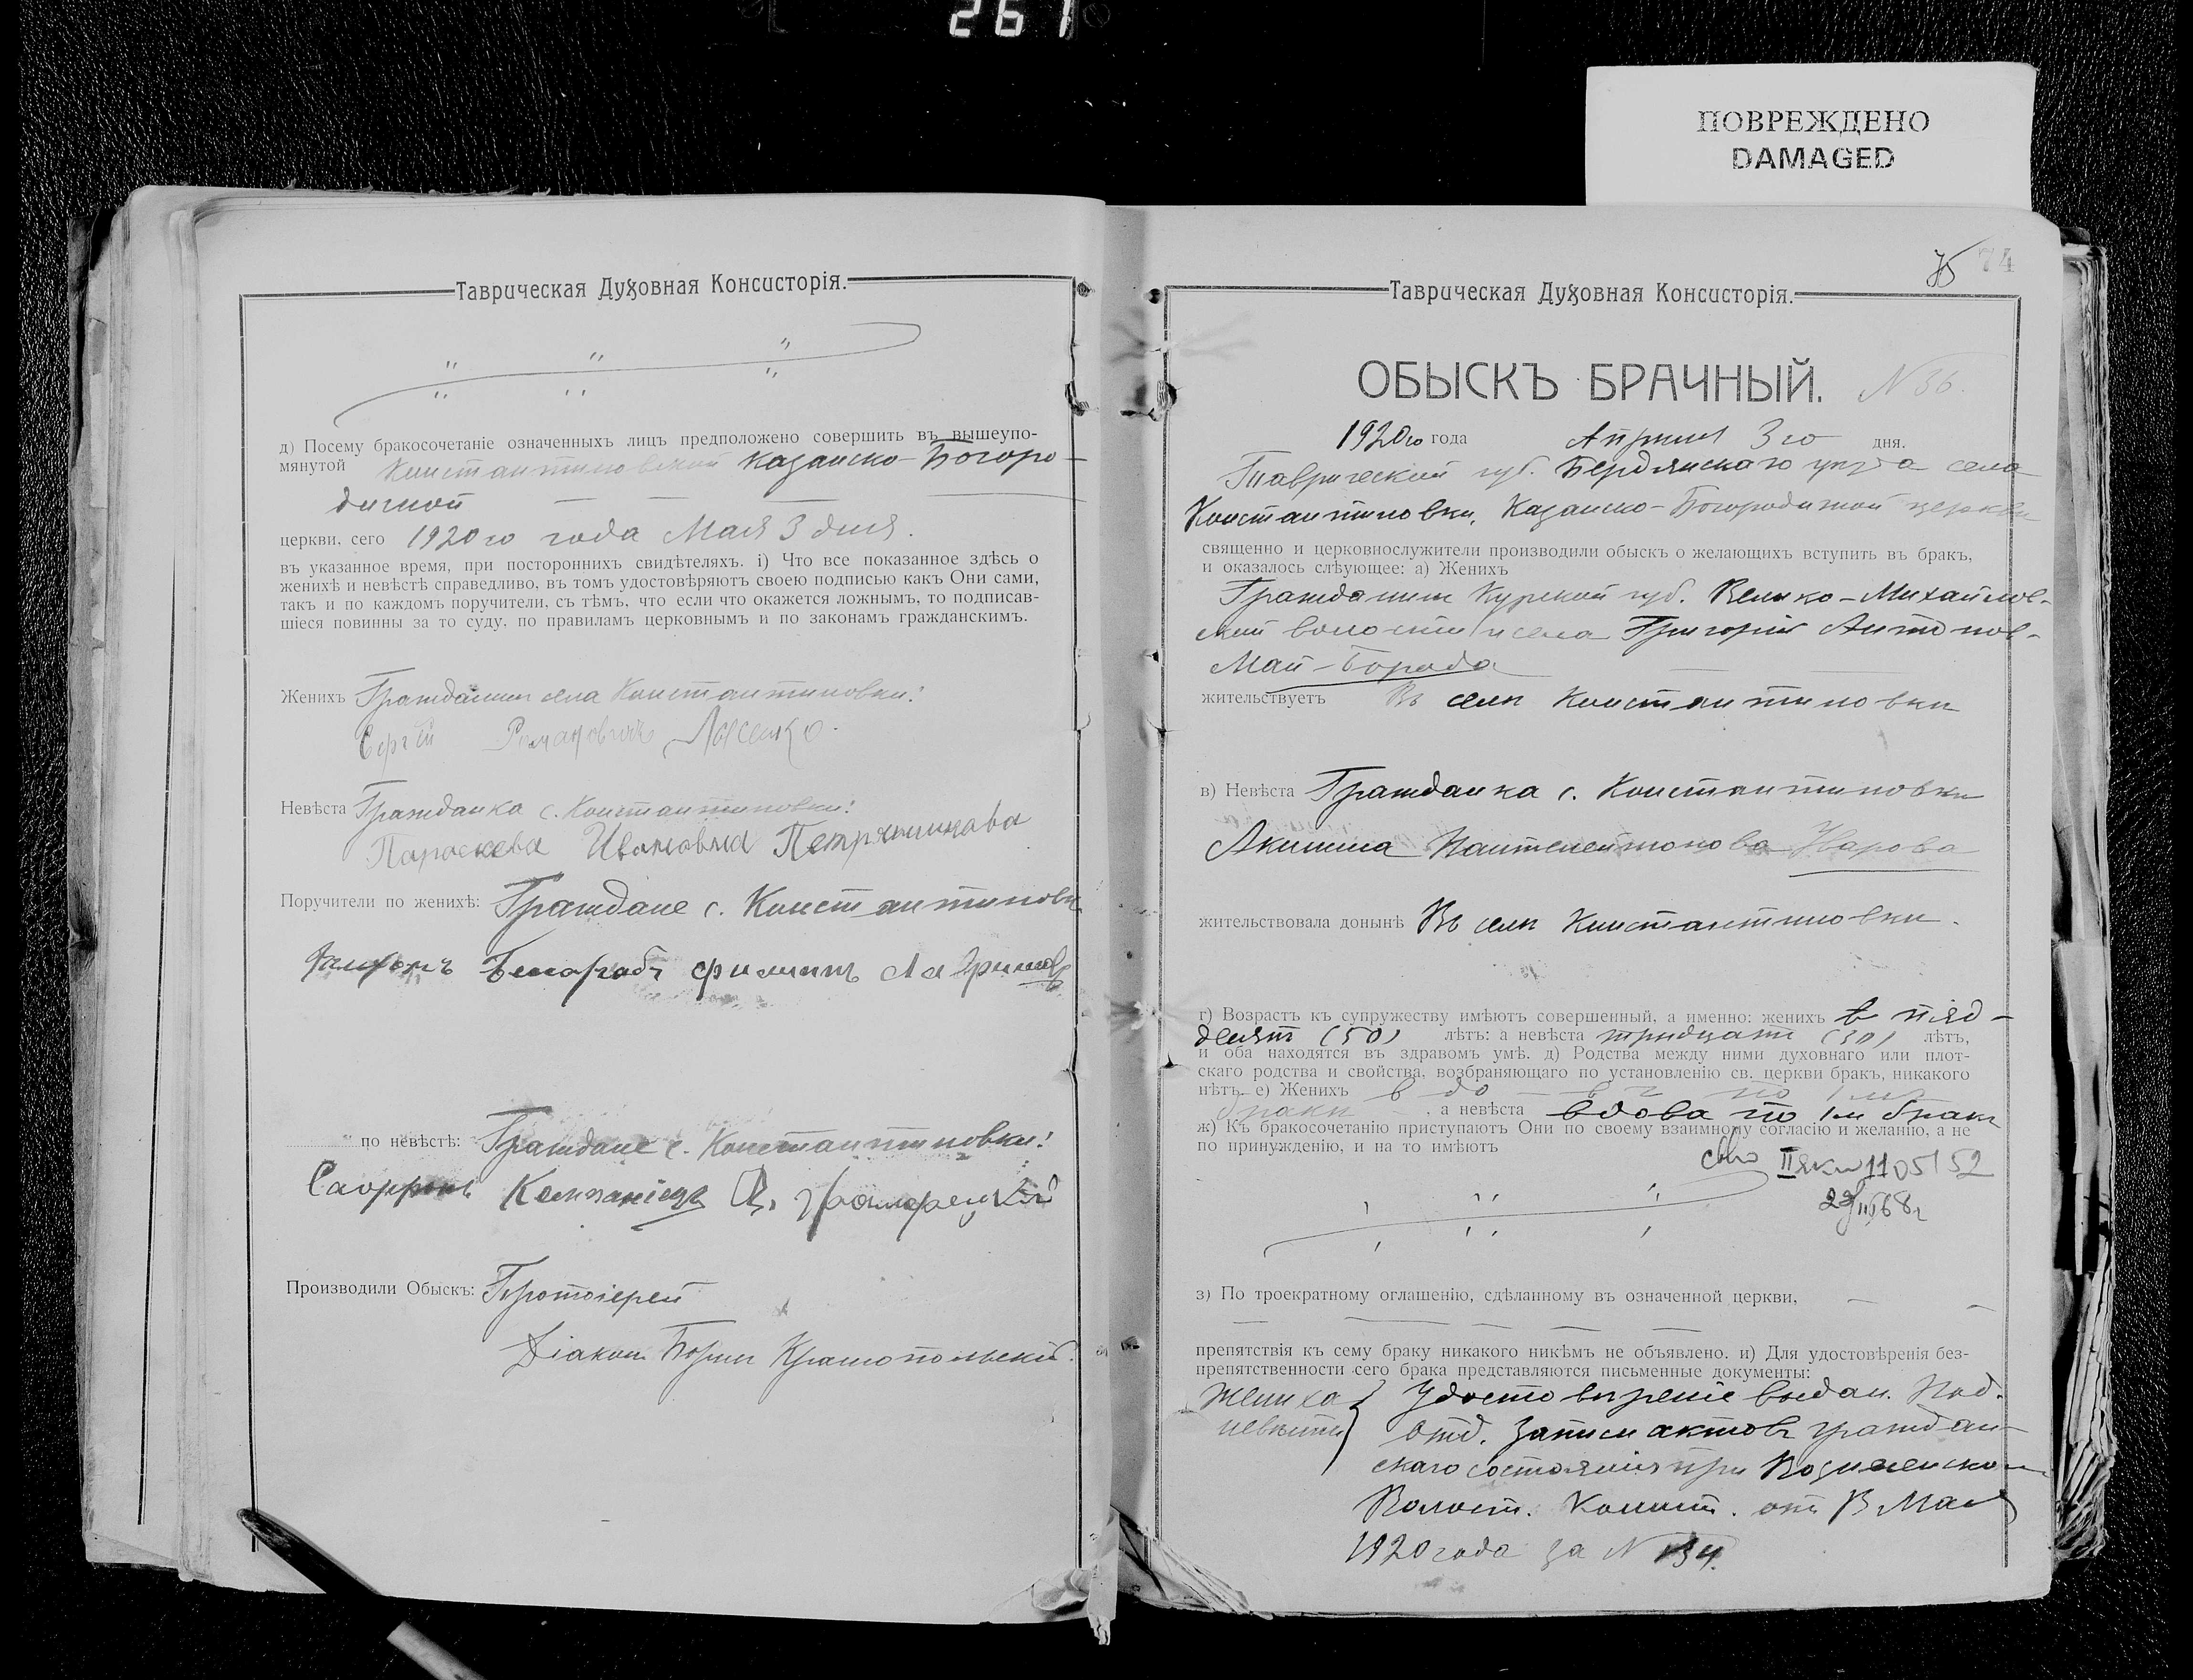 261
ПОВРЕЖДЕНО
DAMAGED
Таврическая Духовная Консисторія.
д) Посему бракосочетаніе означенныхъ лицъ предположено совершить въ вышеупо-
мянутой Константиновской Казанско-Богоро-
дичной
церкви, сего 1920го года Мая 3 дня.
въ указанное время, при постороннихъ свидѣтеляхъ. і) Что все показанное здѣсь о
женихѣ и невѣстѣ справедливо, въ томъ удостовѣряютъ своею подписью какъ Они сами,
такъ и по каждомъ поручители, съ тѣмъ, что если что окажется ложнымъ, то подписав-
шіеся повинны за то суду, по правиламъ церковнымъ и по законамъ гражданскимъ.
Женихъ Гражданин села Константиновки:
Сергій Романовичъ Лысенко.
Невѣста Гражданка с. Константиновки:
Параскева Ивановна
Поручители по женихѣ: Граждане с. Константиновк
филипъ
" по невѣстѣ: Граждане с. Константиновки:
Кампаніецъ
Производили Обыскъ: Протоіерей
Діакон Борис Краснопольскій.
75 74
Таврическая Духовная Консисторія.
ОБЫСКЪ БРАЧНЫЙ. N 36.
1920го года Априля 3го дня.
Таврической губ. Бердянскаго уезда села
Константиновки, Казанско-Богородичной церкви
священно и церковнослужители производили обыскъ о желающихъ вступить въ бракъ,
и оказалось слѣующее: а) Женихъ
Гражданин Курской губ. Велико-Михайлов-
ской волости и села Григорій Антонов-
Май-Борода
жительствуетъ Въ селѣ Константиновки
в) Невѣста Гражданка с. Константиновки
Акилина Пантелеймонова Нарова
жительствовала донынѣ Въ селѣ Константиновки.
г) Возрастъ къ супружеству имѣютъ совершенный, а именно: женихъ в пяд-
десят (50) лѣтъ: а невѣста тридцати (30) лѣтъ,
и оба находятся въ здравомъ умѣ. д) Родства между ними духовнаго или плот-
скаго родства и свойства, возбраняющаго по установленію св. церкви бракъ, никакого
нѣтъ. е) Женихъ вдовец по 1м
браки, а невѣста вдова по 1м бракѣ
ж) Къ бракосочетанію приступаютъ Они по своему взаимному согласію и желанію, а не
по принужденію, и на то имѣютъ
68г
з) По троекратному оглашенію, сдѣланному въ означенной церкви,
препятствія къ сему браку никакого никѣмъ не объявлено. и) Для удостовѣренія без-
препятственности сего брака представляются письменные документы:
Жениха Удостовѣреніе выдан. Под.
невѣсты отд. записи актовъ граждан-
скаго состоянія при Вознесенском
Волост. Комит. от 3 Мая
1920 года за N 134.